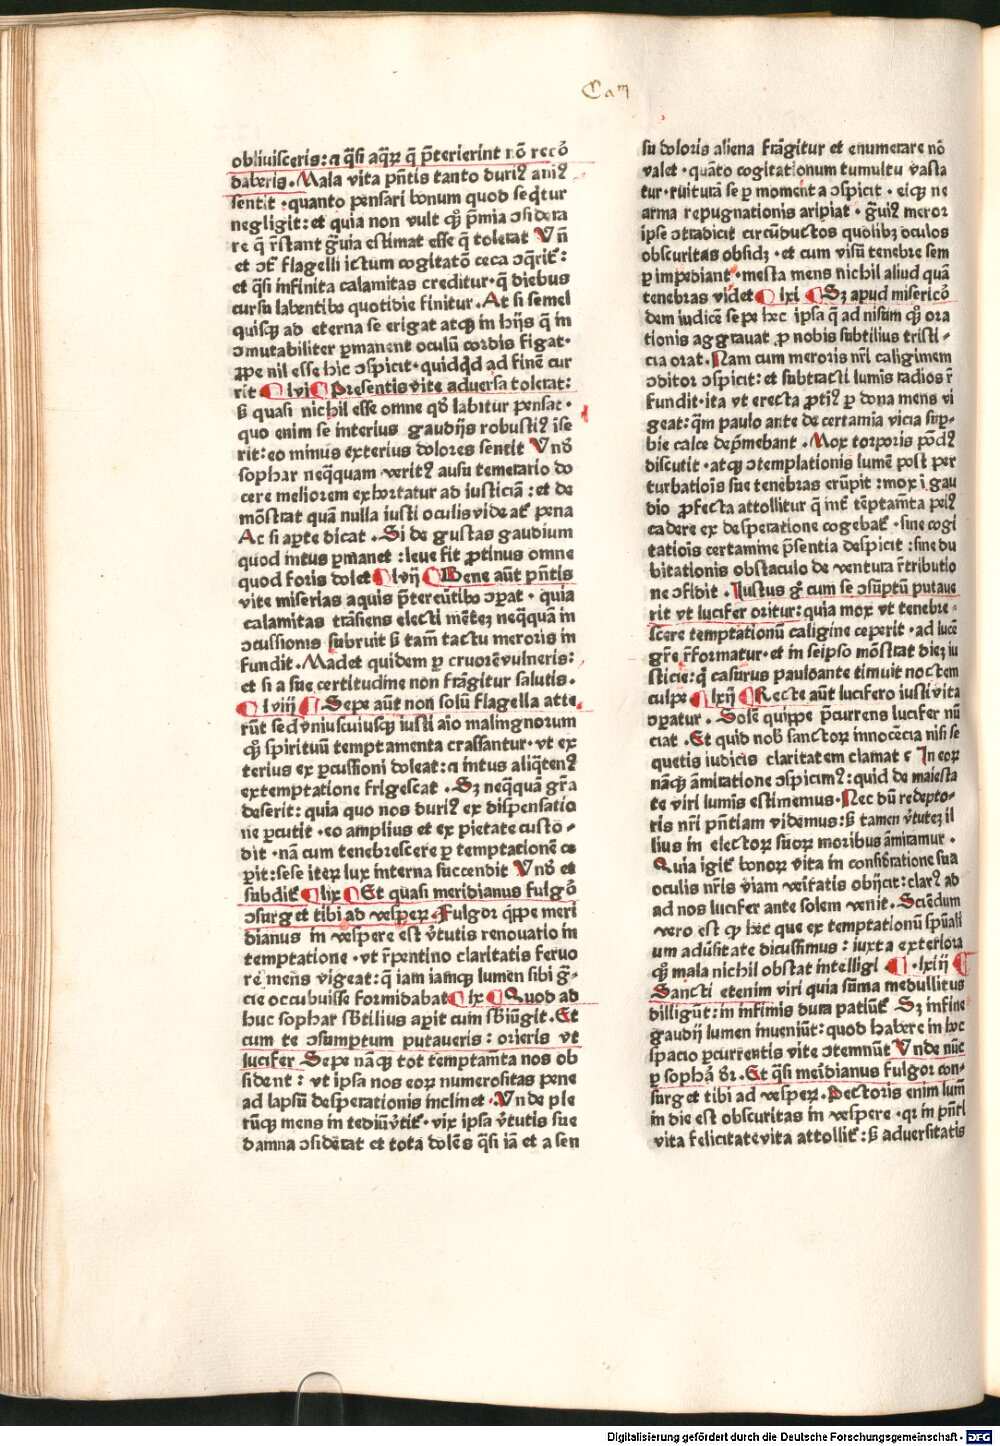 Cam
obliuisceris: ⁊ q̄si aqꝝ q̄ p̄terierint nō recō
daberis. Mala vita pn̄tis tanto duriꝰ aniꝰ
sentit · quanto pensari bonum quod seq̄tur
negligit: et quia non vult qꝫ p̄mia ↄsidera
re q̄ r̄stant gͣuia estimat esse q̄ tolerat Vn̄
et ↄͭ flagelli ictum cogitatō ceca ↄq̄rit᷑:
et q̄si infinita calamitas creditur · q̄ diebus
cursu labentibꝰ quotidie finitur. At si semel
quisqꝫ ad eterna se erigat atqꝫ in hijs q̄ in
ↄmutabiliter ꝑmanent oculū cordis figat·
ꝓpe nil esse hic ↄspicit · quidq̄d ad finē cur
rit lvi Presentis vite aduersa tolerat:
ꝫ quasi nichil esse omne qd̄ labitur pensat·
quo enim se interius gaudijs robustiꝰ ise
rit: eo minus exterius dolores sentit Vnd̄
sophar neq̄quam veritꝰ ausu temerario do
cere meliorem exhortatur ad iusticiā: et de
mōstrat quā nulla iusti oculis videat᷑ pena
Ac si aꝑte dicat. Si de gustas gaudium
quod intus ꝑmanet: leue fit ꝓtinus omne
quod foris dolet lvij Bene aūt pn̄tis
vite miserias aquis p̄tereūtibꝰ ↄꝑat · quia
calamitas trāsiens electi mētez neq̄quā in
ↄcussionis subruit ꝫ tam̄ tactu meroris in
fundit. Madet quidem ꝑ cruorē vulneris:
et si a sue certitudine non frāgitur salutis.
lviij Sepe aūt non solū flagella atte
rūt sed vniuscuiusqꝫ iusti aīo malingnorum
qꝫ spirituū temptamenta crassantur · vt ex
terius ex ꝑcussioni doleat: ⁊ intus aliq̄tenꝰ
ex temptatione frigescat. Sꝫ neq̄quam gr̄a
deserit: quia quo nos duriꝰ ex dispensatio
ne ꝑcutit · eo amplius et ex pietate custo-
dit · nā cum tenebrescere ꝑ temptationē ce
ꝑit: sese iteꝝ lux interna succendit Vnd̄ et
subdit᷑ lix Et quasi meridianus fulgō
ↄsurget tibi ad vesꝑeꝝ. Fulgor q̄ppe meri
dianus in vespere est v̄tutis renouatio in
temptatione · vt r̄pentino claritatis feruo
re mens vigeat: q̄ iam iamqꝫ lumen sibi gr̄-
cie occubuisse formidabat lx Quod ad
huc sophar sb̄tilius aꝑit cum sb̄iūgit. Et
cum te ↄsumptum putaueris: orieris vt
lucifer Sepe nāqꝫ tot temptam̄ta nos ob
sident: vt ipsa nos eoꝝ numerositas pene
ad lapsū desperationis inclinet. Vnde ple
rūqꝫ mens in tediū v̄tit᷑ · vix ipsa v̄tutis sue
damna ↄsiderat et tota dolēs q̄si iā et a sen
su doloris aliena frāgitur et enumerare nō
valet · quāto cogitationum tumultu vasta
tur · ruiturā se ꝑ momenta ↄspicit · eiqꝫ ne
arma repugnationis aripiat · gͣuiꝰ meror
ipse ↄtradicit circūductos quolibꝫ oculos
obscuritas obsidꝫ · et cum visū tenebre sem
ꝑ impediant · mesta mens nichil aliud quā
tenebras videt lxi Sꝫ apud misericō
dem iudicē sepe hec ipsa q̄ ad nisum qꝫ ora
tionis aggrauat ꝓ nobis subtilius tristi-
cia orat. Nam cum meroris nr̄i caliginem
ↄditor ↄspicit: et subtracti lumis radios r̄
fundit · ita vt erecta ꝓtiꝰ ꝑ dona mens vi
geat: q̄m paulo ante de certamia vicia suꝑ-
bie calce dep̄mebant. Mox torporis pōdꝰ
discutit · atqꝫ ↄtemplationis lumē post per
turbatiois sue tenebras erūpit: mox i gau
dio ꝓfecta attollitur q̄ int᷑ tēptam̄ta peiꝰ
cadere ex desperatione cogebat᷑ · sine cogi
tatiois certamine p̄sentia despicit: sine du
bitationis obstaculo de ventura r̄tributio
ne ↄfidit. Iustus gͦ cum se ↄsūptū putaue
rit vt lucifer oritur: quia mox vt tenebre-
scere temptationū caligine ceperit · ad lucē
gr̄e r̄formatur · et in seipso mōstrat diez iu
sticie: qͥ casurus pauloante timuit noctem
culpe lxij Recte aūt lucifero iusti vita
ↄꝑatur. Solē quippe p̄currens lucifer nū
ciat. Et quid nob̄ sanctoꝝ innocēcia nisi se
quetis iudicis claritatem clamat ? In eoꝝ
nāqꝫ āmiratione ↄspicimꝰ: quid de maiesta
te viri lumis estimemus. Nec dū redepto-
ris nr̄i pn̄tiam videmus: ꝫ tamen v̄tutez il
lius in electoꝝ suoꝝ moribus āmiramur.
Quia igit᷑ bonoꝝ vita in consid̄ratione sua
oculis nr̄is viam veritatis obijcit: clarꝰ ad
ad nos lucifer ante solem venit. Sciēdum
vero est qꝫ hec que ex temptationū spūali
um adūsitate dicussimus: iuxta exteriora
qꝫ mala nichil obstat intelligi · lxiij
Sancti etenim viri quia sūma medullitus
dilligūt: in infimis dura patiūt᷑ Sꝫ in fine
gaudij lumen inueniūt: quod habere in hoc
spacio ꝑcurrentis vite ↄtemnūt Vnde nūc
ꝑ sophā dr̄. Et q̄si meīdianus fulgor con-
surget tibi ad vesꝑeꝝ. Pectoris enim lum̄
in die est obscuritas in vespere · qꝛ in pn̄ti
vita felicitate vita attollit᷑: ꝫ aduersitatis
Digitalisierung gefördert durch die Deutsche Forschungsgemeinschaft - DFG